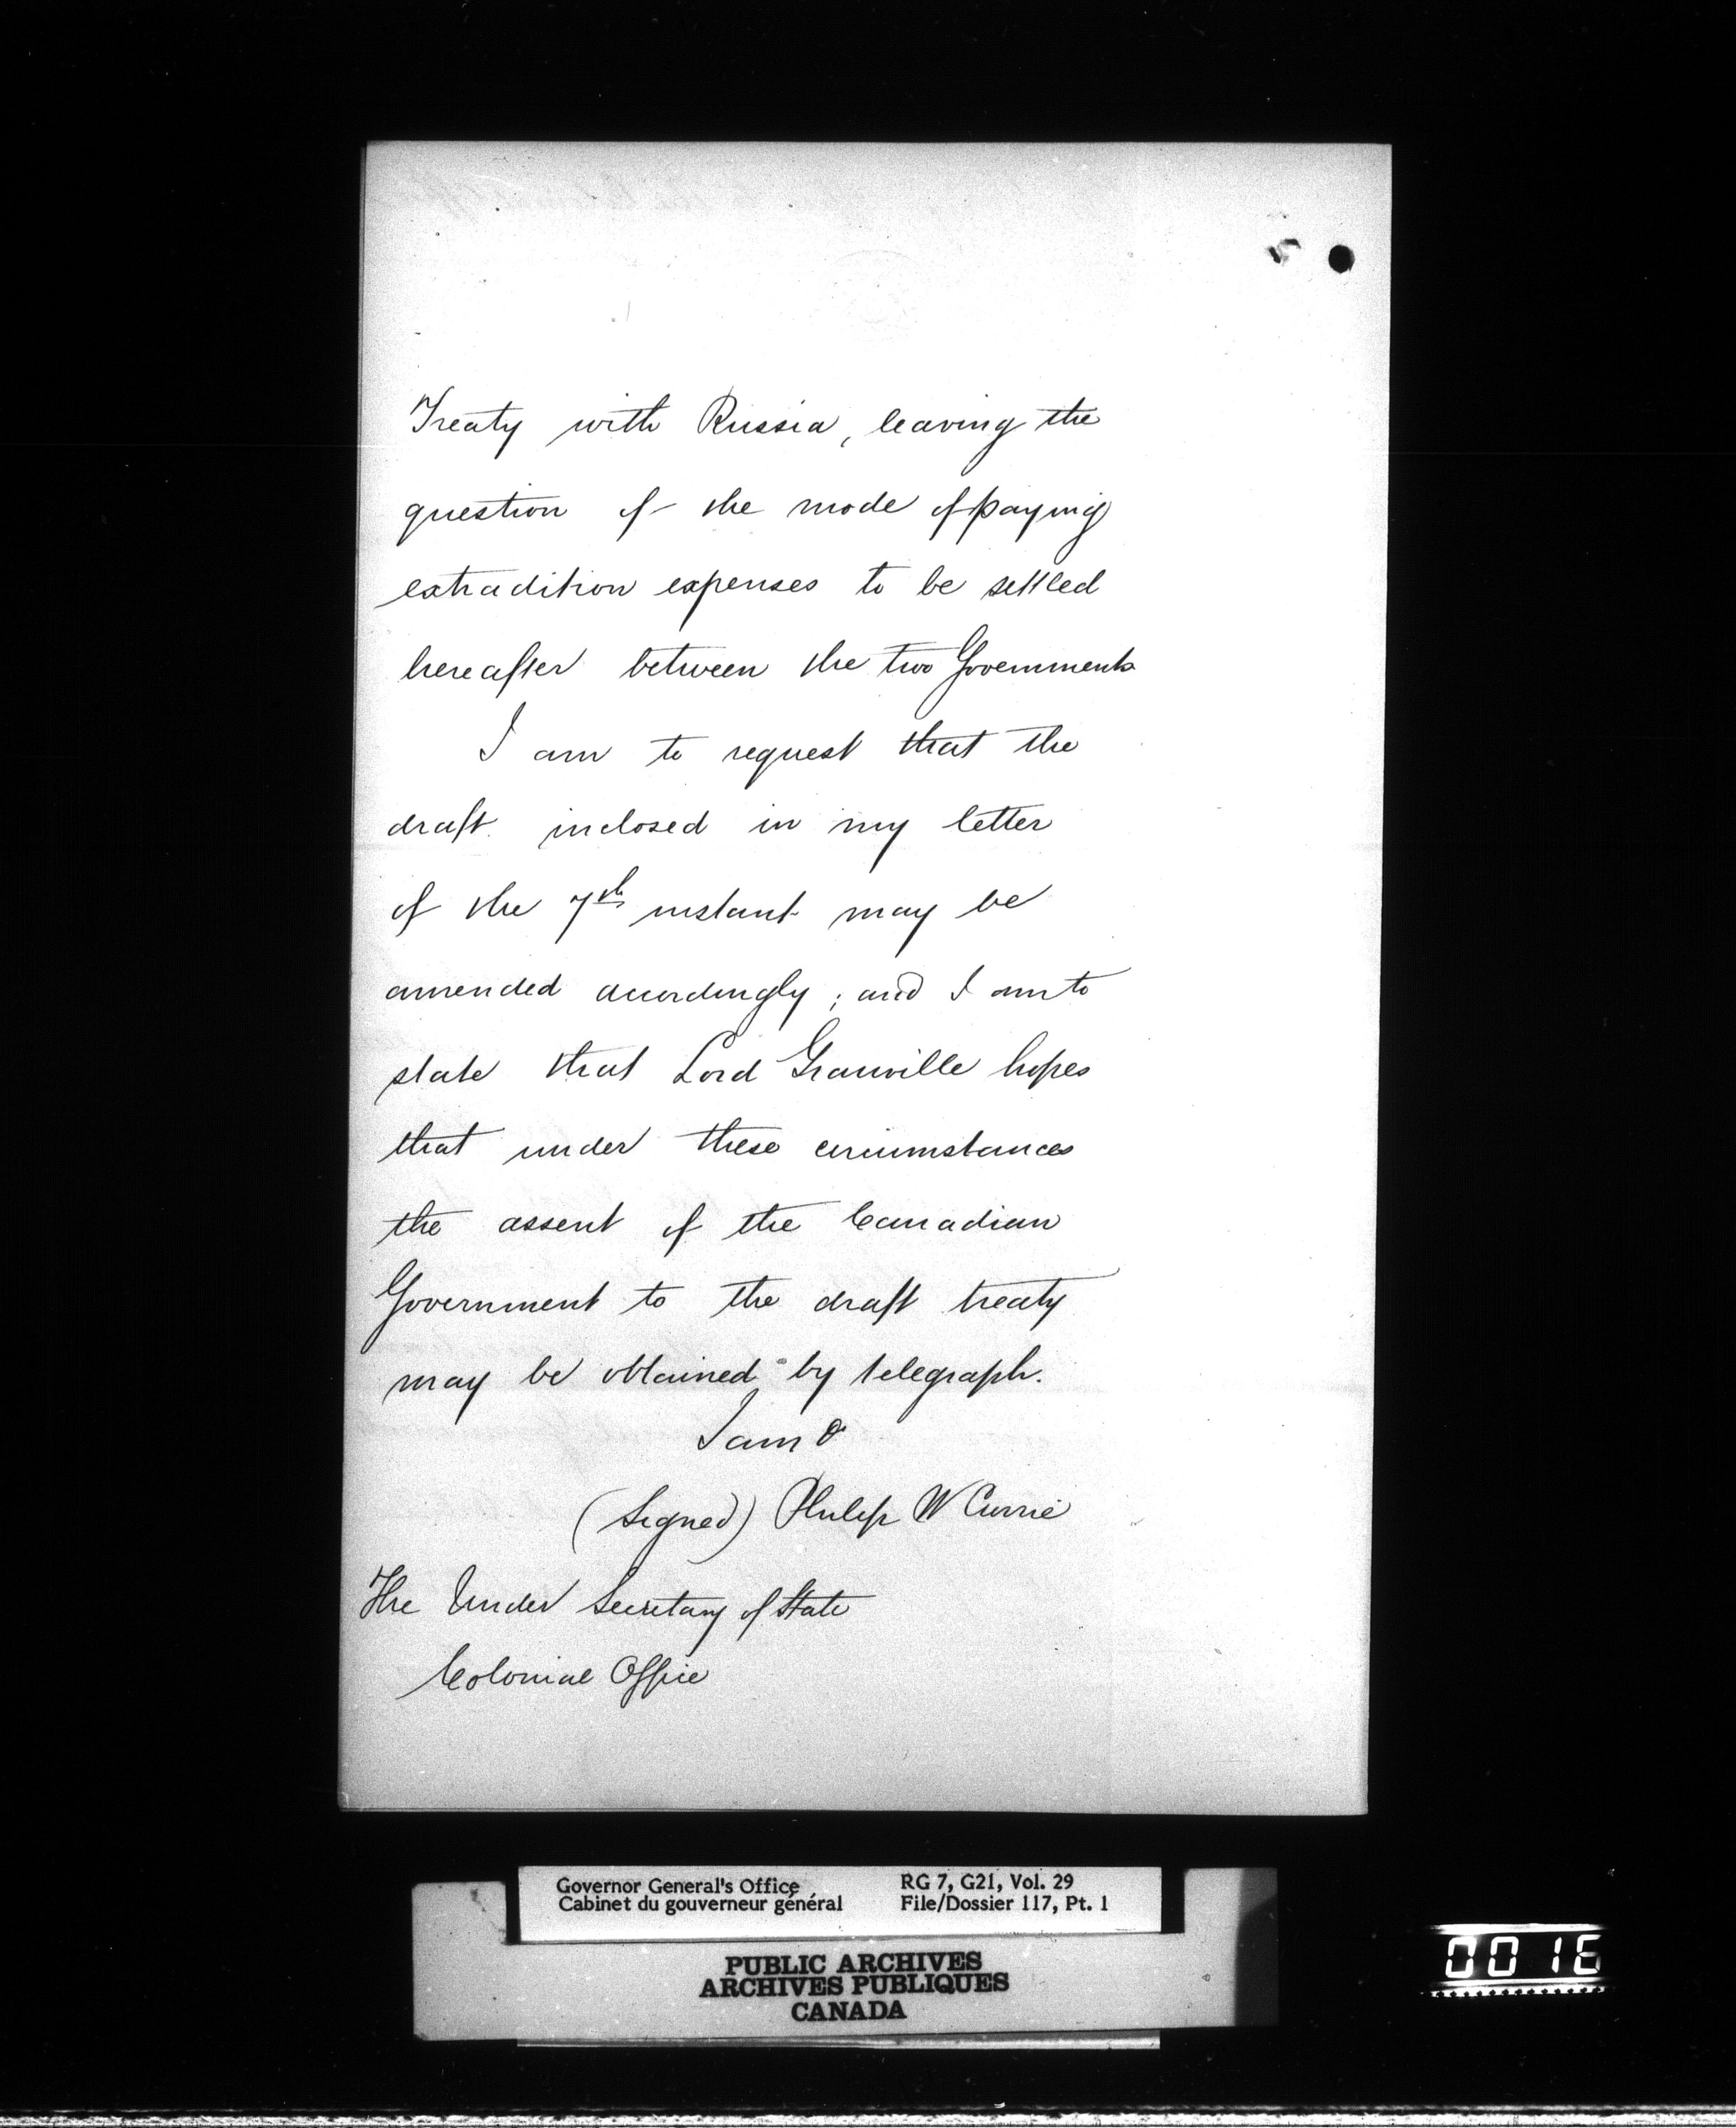 Treaty with Russia, leaving the
question of the mode of paying
extradition expenses to be settled
hereafter between the two Governments
I am to request that the
draft inclosed in my letter
of the 7th instant may be
amended accordingly; and I am to
state that Lord Granville hopes
that under these circumstances
the assent of the Canadian
Government to the draft treaty
may be obtained by telegraph.
I am &
(Signed) Philip W Currie
The Under Secretary of State
Colonial Office
Governor General's Office
Cabinet du gouverneur général
RG 7, G21, Vol. 29
File/Dossier 117, Pt. 1
PUBLIC ARCHIVES
ARCHIVES PUBLIQUES
CANADA
0016